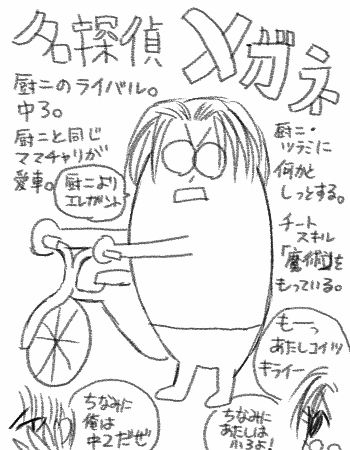 名探偵
メガネ
厨二のライバル。
中3。
厨二と同じ
ママチャリが
愛車。
厨二より
エレガント
厨二・
ツラミに
何かと
しっとする。
チート
スキル
「魔術」を
もっている。
もーっ
あたしコイツ
キライー
ちなみに
俺は
中2だぜ
ちなみに
あたしは
小3よ!